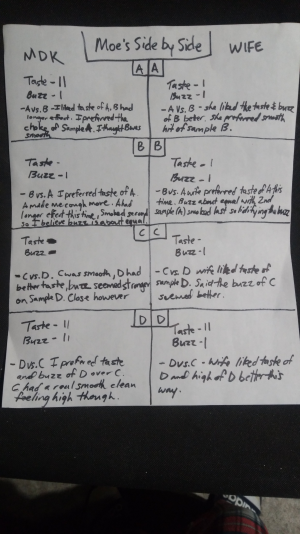 MDK
Moe's Side by Side
WIFE
A
A
Taste - 11
Buzz - 1
- A vs. B - I liked taste of A. B had
longer effect. I preferred the
choke of Sample A. I thought B was
smooth
Taste - 1
Buzz - 1
- A vs B - she liked the taste & buzz
of B better. she preferred smooth
hit of sample B.
B
B
Taste -
Buzz - 1
- B vs. A I preferred taste of A
A made me cough more. A had
longer effect this time, smoked second
so I believe buzz is about equal
Taste - 1
Buzz - 1
- B vs. A wife preferred taste of A this
time. Buzz about equal with 2nd
sample (A) smoked last solidifying the buzz
C
C
Taste
Buzz
- C vs. D. C was smooth, D had
better taste, buzz seemed stronger
on Sample D. Close however
Taste -
Buzz - 1
- C vs. D wife liked taste of
sample D. Said the buzz of C
seemed better.
D
D
Taste - 11
Buzz - 11
- D vs. C I preferred taste
and buzz of D over C.
C had a real smooth clean
feeling high though.
Taste - 11
Buzz - 1
- D vs. C - Wife liked taste of
D and high of D better this
way.